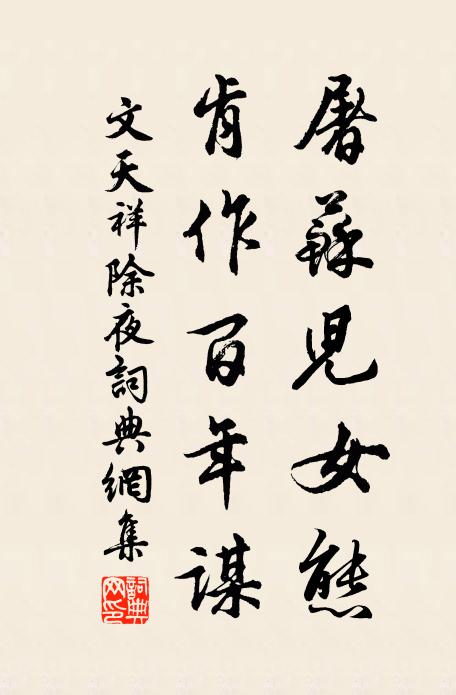 屠蘇児女態
肯作百年謀
文天祥除夜詞典網集
詞典网印